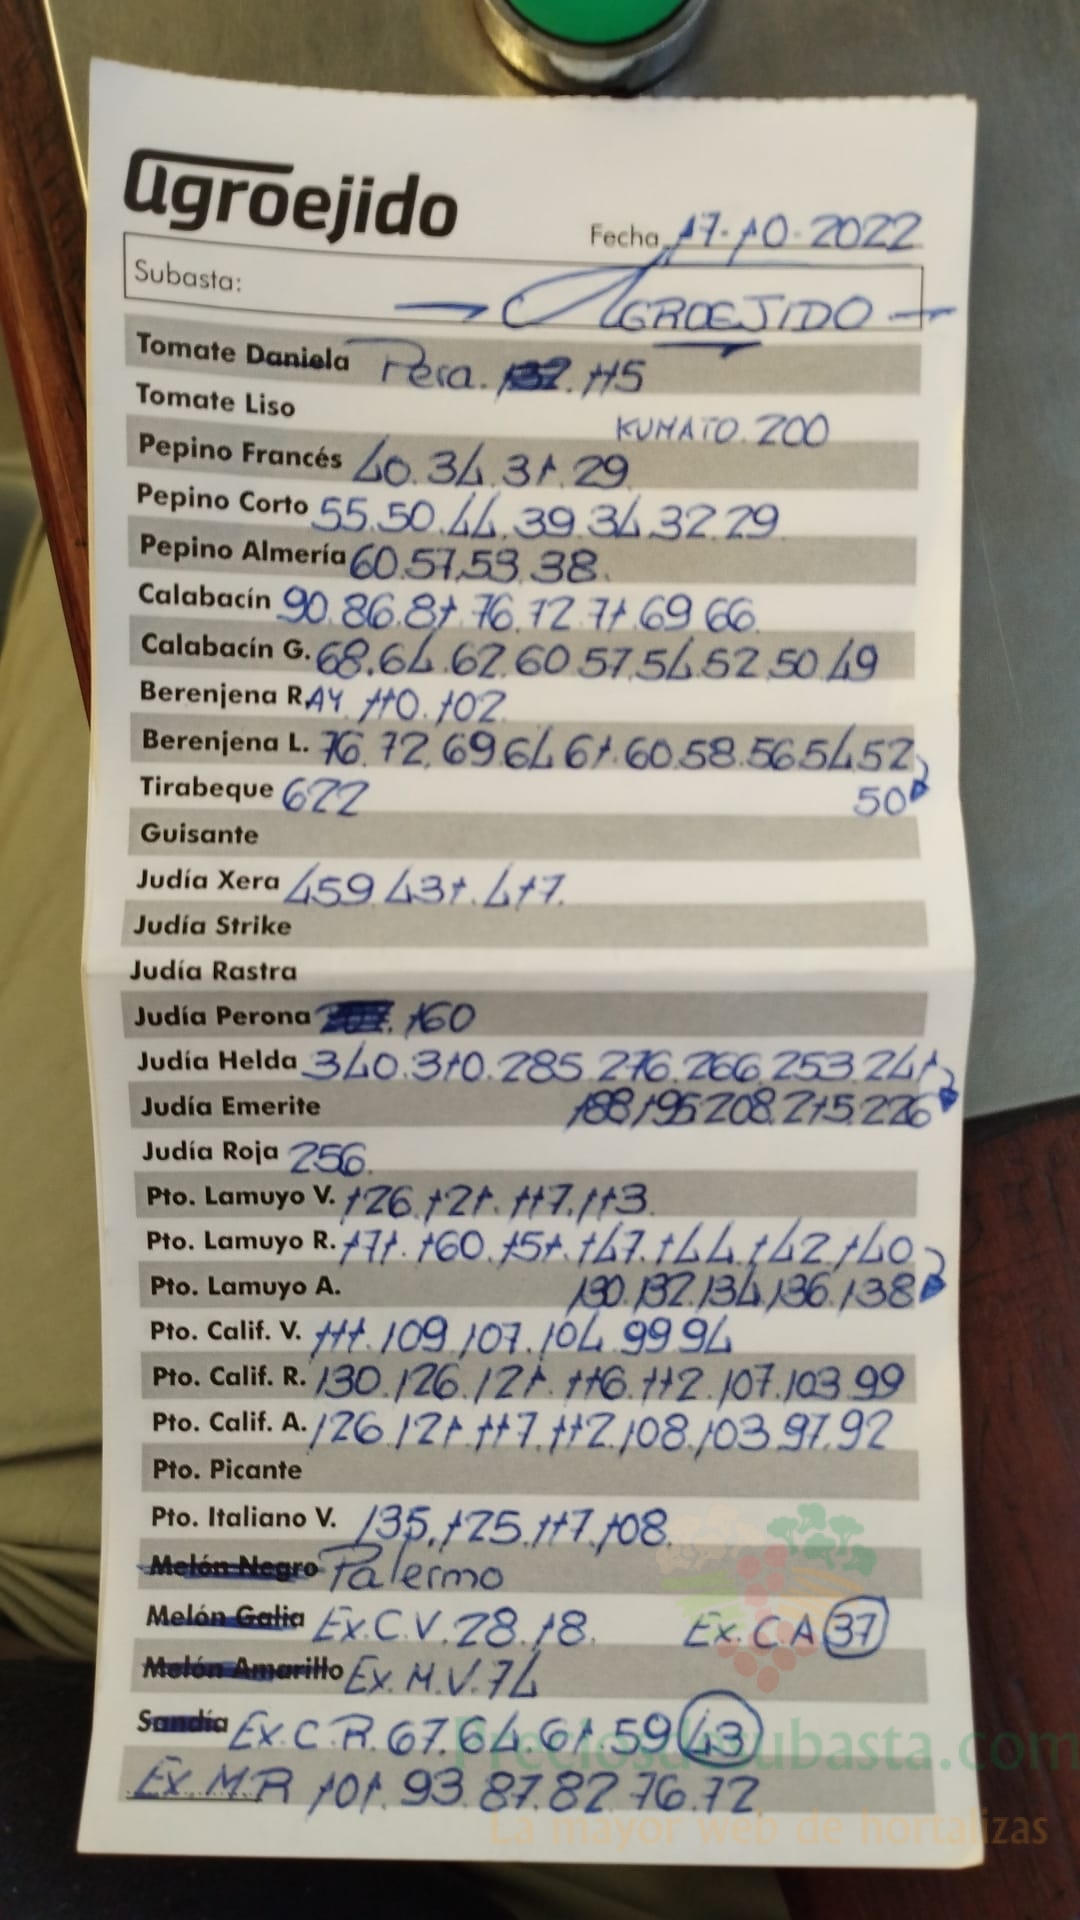 agroejido
Fecha 17-10-2022
Subasta: AGROEJIDO
Tomate Daniela Pera. 115
Tomate Liso KUMATO. 200
Pepino Francés 40.34.31.29
Pepino Corto 55.50.44.39.34.32.29
Pepino Almería 60.57.53.38.
Calabacín 90.86.81.76.72.71.69 66
Calabacín G. 68.64.62.60.57.54.52.50.49
Berenjena R.AY. 110.102
Berenjena L. 76.72.69.64 61.60.58.56.54.52
Tirabeque 622 50
Guisante
Judía Xera 459.431.417.
Judía Strike
Judía Rastra
Judía Perona 160
Judía Helda 340.310.285.276.266.253.241
Judía Emerite 188.195.208.215.226
Judía Roja 256.
Pto. Lamuyo V. 126.121.117.113
Pto. Lamuyo R. 171.160.151.147.144.142.140
Pto. Lamuyo A. 130.132.134.136.138
Pto. Calif. V. 111.109.107.104.99.94
Pto. Calif. R. 130.126.121.116.112.107.103.99
Pto. Calif. A. 126.121.117.112.108.103.97.92
Pto. Picante
Pto. Italiano V. 135.125.117.108
Melón Negro Palermo
Melón Galia Ex.C.V.28.18. Ex.C.A 37
Melón Amarillo Ex.M.V.74
Sandía Ex.C.R.67.64.61.59 43
Ex.M.R 101.93.87.82.76.72
Preciosdesubasta.com
La mayor web de hortalizas